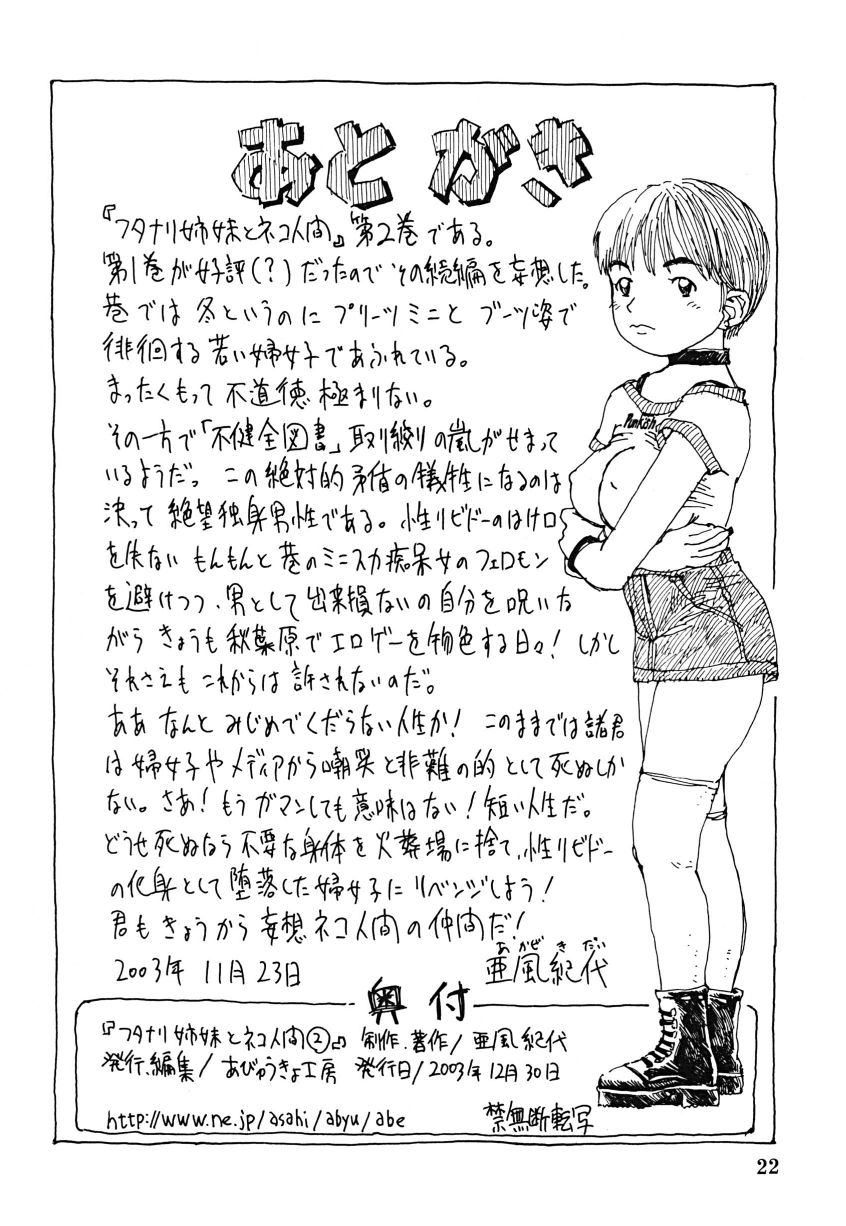 あとがき
『フタナリ姉妹とネコ人間』第2巻である。
第1巻が好評(?)だったのでその続編を妄想した。
巷では冬というのにプリーツミニとブーツ姿で
徘徊する若い婦女子であふれている。
まったくもって不道徳極まりない。
その一方で「不健全図書」取り締りの嵐がせまって
いるようだ。この絶対的矛盾の犠牲になるのは
決って絶望独身男性である。性リビドーのはけ口
を失ない もんもんと巷のミニスカ痴呆女のフェロモン
を避けつつ、男として出来損ないの自分を呪いな
がら きょうも秋葉原でエロゲーを物色する日々! しかし
それさえもこれからは許されないのだ。
ああ なんと みじめでくだらない人生か! このままでは諸君
は婦女子やメディアから嘲笑と非難の的として死ぬしか
ない。さあ!もうガマンしても意味はない!短い人生だ。
どうせ死ぬなら不要な身体を火葬場に捨て、性リビドー
の化身として堕落した婦女子にリベンジしよう!
君もきょうから妄想ネコ人間の仲間だ!
あかぜ きだい
2003年 11月23日 亜風紀代
Punkish
奥付
『フタナリ姉妹とネコ人間②』 制作、著作/亜風紀代
発行、編集/あびゅうきょ工房 発行日/2003年12月30日
http://www.ne.jp/asahi/abyu/abe 禁無断転写
22